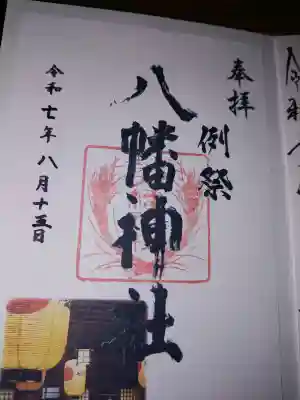 奉拝
例祭
八幡神社
令和七年八月十五日